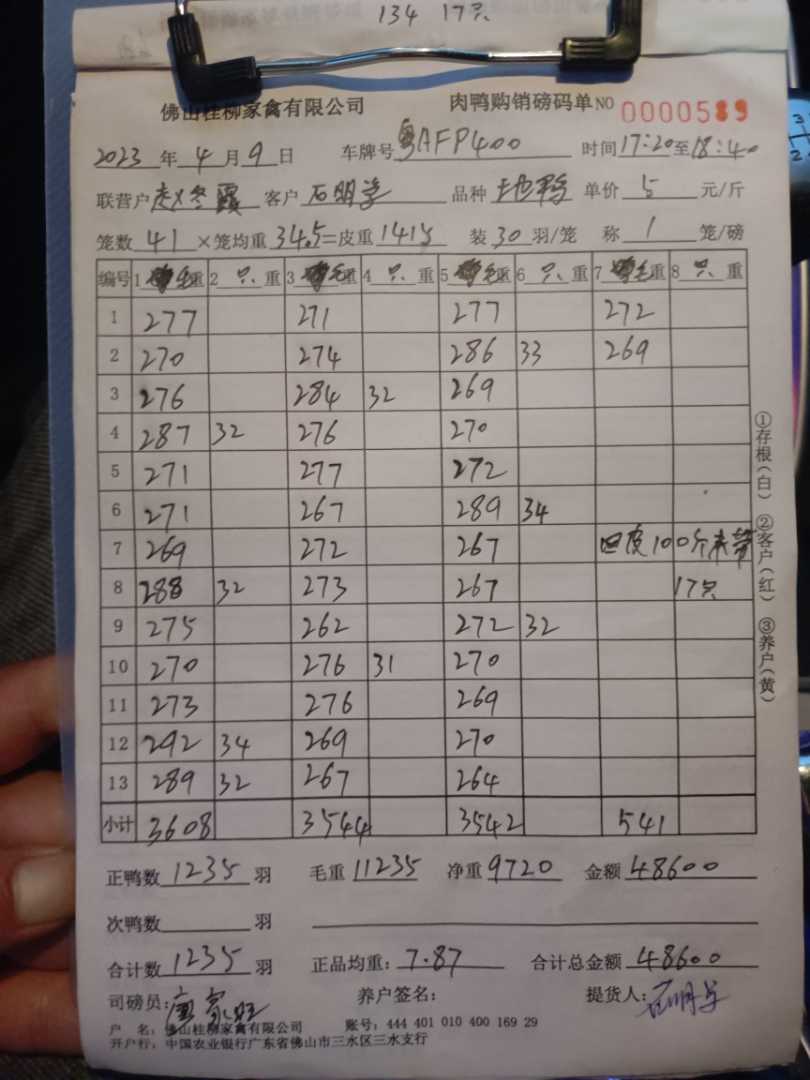 134 17只
佛山桂柳家禽有限公司 肉鸭购销磅码单 NO 0000589
2023 年 4 月 9 日 车牌号 粤AFP400 时间 17:20 至 18:40
联营户 赵冬霞 客户 石明学 品种 土也鸭 单价 5 元/斤
笼数 41 ×笼均重 34.5 =皮重 1415 装 30 羽/笼 称 1 笼/磅
编号 1 毛重 2 只 重 3 毛重 4 只 重 5 毛重 6 只 重 7 毛重 8 只 重
1 277 271 277 272
2 270 274 286 33 269
3 276 284 32 269
4 287 32 276 270
5 271 277 272
6 271 267 289 34
7 269 272 267 100斤
8 288 32 273 267 17只
9 275 262 272 32
10 270 276 31 270
11 273 276 269
12 292 34 269 270
13 289 32 267 264
小计 3608 3544 3542 541
正鸭数 1235 羽 毛重 11235 净重 9720 金额 48600
次鸭数 羽
合计数 1235 羽 正品均重: 7.87 合计总金额 48600
司磅员: 养户签名: 提货人: 石明学
户 名: 佛山桂柳家禽有限公司 账号: 444 401 010 400 169 29
开户行: 中国农业银行广东省佛山市三水区三水支行
①存根(白) ②客户(红) ③养户(黄)